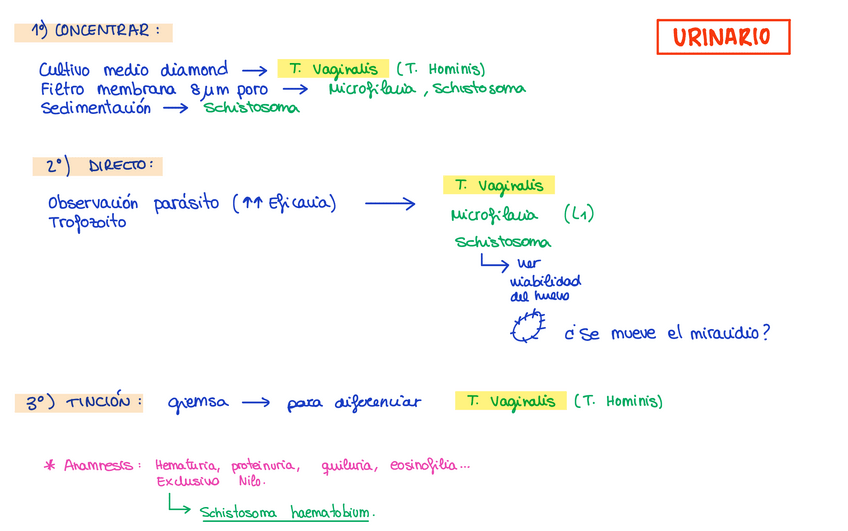 1º) CONCENTRAR:
URINARIO
Cultivo medio diamond → T. Vaginalis (T. Hominis)
Filtro membrana 8µm poro → Microfilaria, Schistosoma
Sedimentación → Schistosoma
2º) DIRECTO:
Observación parásito (↑↑ Eficacia) → T. Vaginalis
Trofozoito
Microfilaria (L1)
Schistosoma
ver
viabilidad
del huevo
¿Se mueve el miracidio?
3º) TINCIÓN: giemsa → para diferenciar T. Vaginalis (T. Hominis)
* Anamnesis: Hematuria, proteinuria, quiluria, eosinofilia...
Exclusivo Nilo.
Schistosoma haematobium.